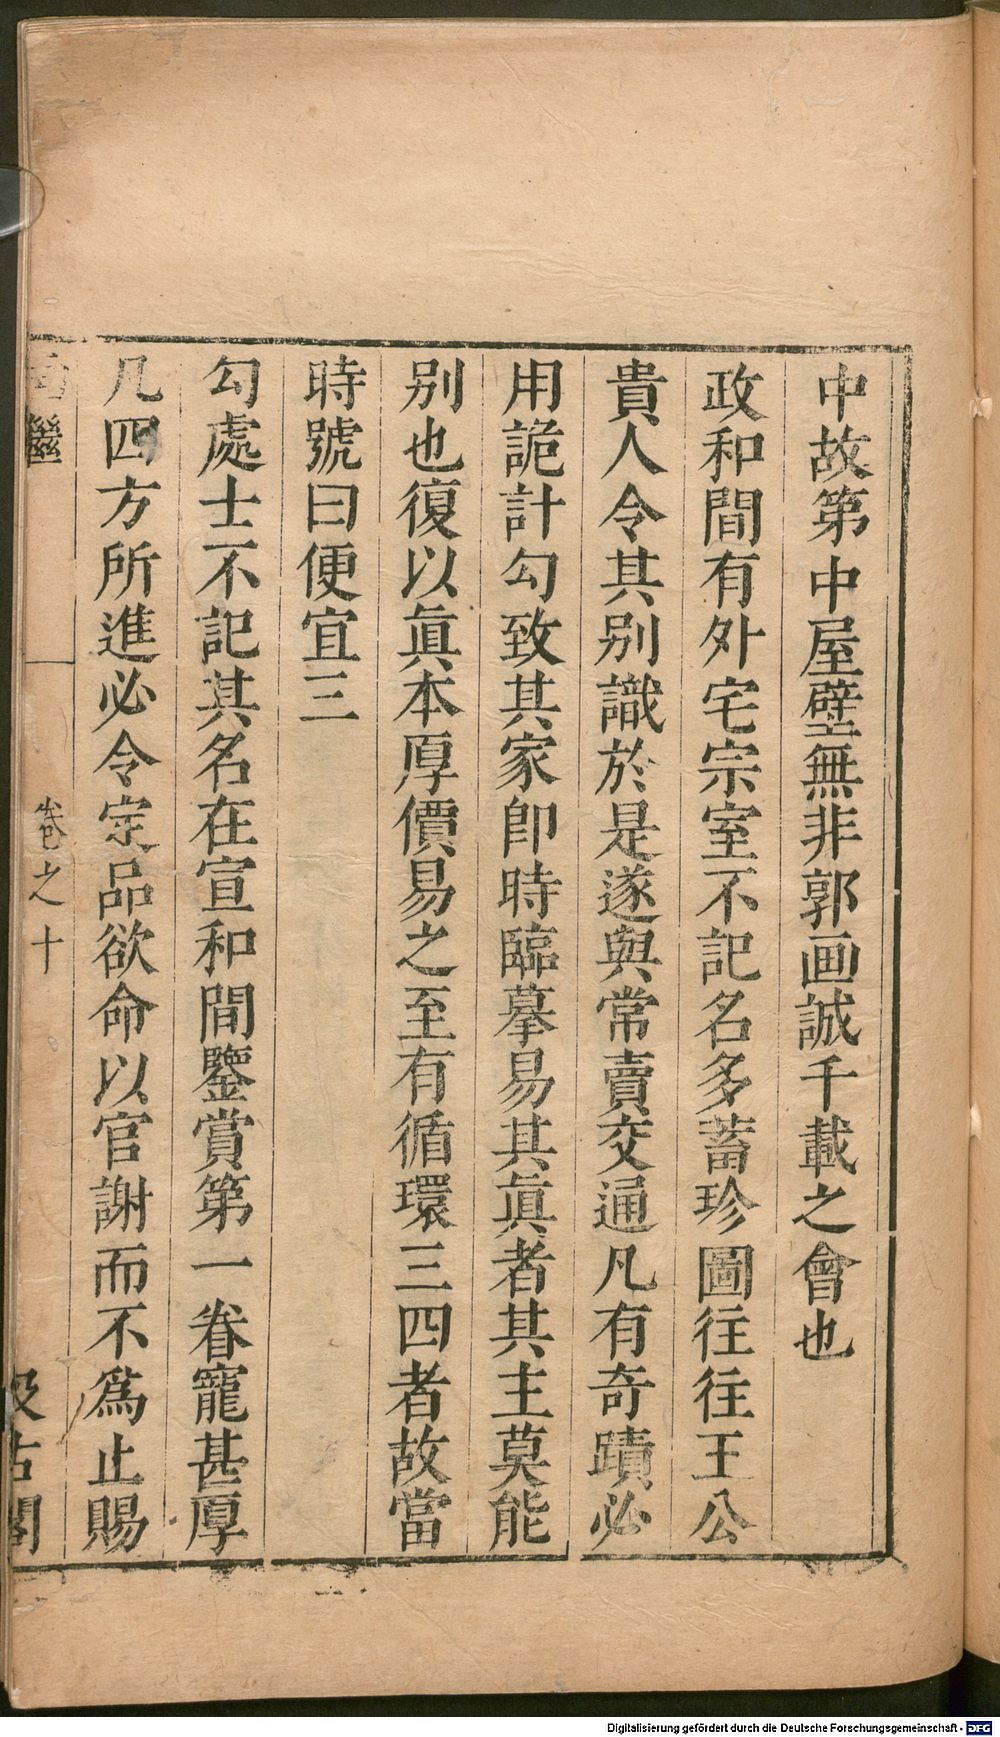 中故第中屋壁無非郭画誠千載之會也
政和間有外宅宗室不記名多蓄珍圖往往王公
貴人令其别識於是遂與常賣交通凡有奇蹟必
用詭計勾致其家即時臨摹易其眞者其主莫能
别也復以眞本厚價易之至有循環三四者故當
時號曰便宜三
勾處士不記其名在宣和間鑒賞第一眷寵甚厚
凡四方所進必令定品欲命以官謝而不爲止賜
繼
卷之十
汲古閣
Digitalisierung gefördert durch die Deutsche Forschungsgemeinschaft - DFG